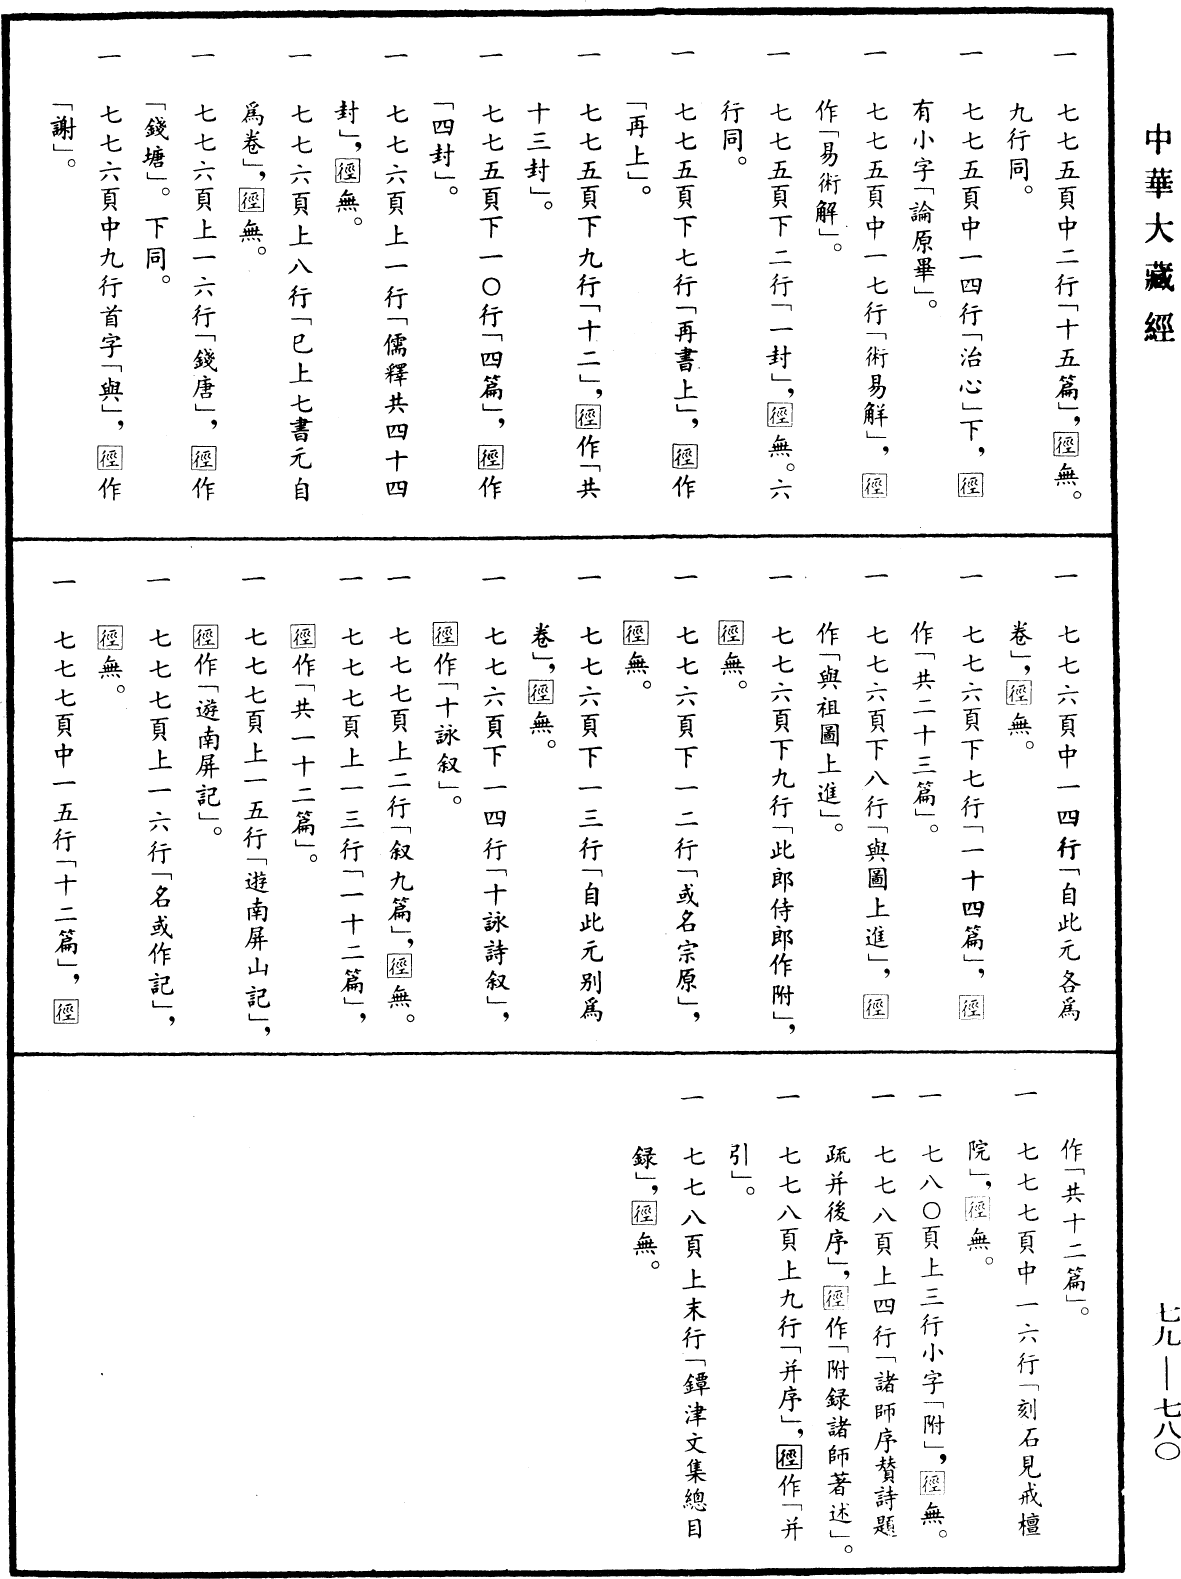 中華大藏經
七九—七八〇
一 七七五頁中二行「十五篇」，徑無。
九行同。
一 七七五頁中一四行「治心」下，徑
有小字「論原畢」。
一 七七五頁中一七行「術易解」，徑
作「易術解」。
一 七七五頁下二行「一封」，徑無。六
行同。
一 七七五頁下七行「再書上」，徑作
「再上」。
一 七七五頁下九行「十二」，徑作「共
十三封」。
一 七七五頁下一〇行「四篇」，徑作
「四封」。
一 七七六頁上一行「儒釋共四十四
封」，徑無。
一 七七六頁上八行「已上七書元自
爲卷」，徑無。
一 七七六頁上一六行「錢唐」，徑作
「錢塘」。下同。
一 七七六頁中九行首字「與」，徑作
「謝」。
一 七七六頁中一四行「自此元各爲
卷」，徑無。
一 七七六頁下七行「一十四篇」，徑
作「共二十三篇」。
一 七七六頁下八行「與圖上進」，徑
作「與祖圖上進」。
一 七七六頁下九行「此郎侍郎作附」，
徑無。
一 七七六頁下一二行「或名宗原」，
徑無。
一 七七六頁下一三行「自此元别爲
卷」，徑無。
一 七七六頁下一四行「十詠詩叙」，
徑作「十詠叙」。
一 七七七頁上二行「叙九篇」，徑無。
一 七七七頁上一三行「一十二篇」，
徑作「共一十二篇」。
一 七七七頁上一五行「遊南屏山記」，
徑作「遊南屏記」。
一 七七七頁上一六行「名或作記」，
徑無。
一 七七七頁中一五行「十二篇」，徑
作「共十二篇」。
一 七七七頁中一六行「刻石見戒檀
院」，徑無。
一 七八〇頁上三行小字「附」，徑無。
一 七七八頁上四行「諸師序賛詩題
疏并後序」，徑作「附録諸師著述」。
一 七七八頁上九行「并序」，徑作「并
引」。
一 七七八頁上末行「鐔津文集總目
録」，徑無。